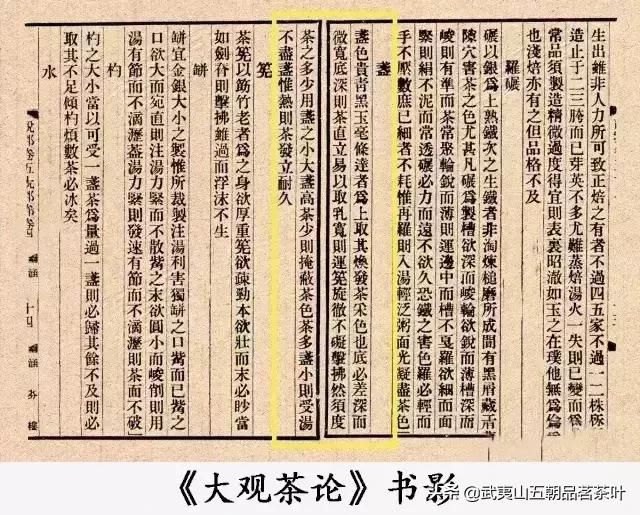 生出雖非人力所可致正焙之有者不過四五家不過一二株所
造止于二三胯而已芽英不多尤難蒸焙湯火一失則已變而為
常品須製造精微過度得宜則表裏昭澈如玉之在璞他無為倫
也淺焙亦有之但品格不及
羅碾
碾以銀為上熟鐵次之生鐵者非淘煉槌磨所成間有黑屑藏于
隙穴害茶之色尤甚凡碾為製槽欲深而峻輪欲銳而薄槽深而
峻則有準而茶常聚輪銳而薄則運邊中而槽不戛羅欲細而面
緊則絹不泥而常透碾必力而遠不欲久恐鐵之害色羅必輕而
手不厭數庶已細者不耗惟再羅則入湯輕泛粥面光凝盡茶色
盞
盞色貴青黑玉毫條達者為上取其煥發茶采色也底必差深而
微寬底深則茶直立易以取乳寬則運筅旋徹不礙擊拂然須度
茶之多少用盞之小大盞高茶少則掩蔽茶色茶多盞小則受湯
不盡盞惟熱則茶發立耐久
筅
茶筅以筋竹老者為之身欲厚重筅欲疎勁本欲壯而末必眇當
如劍脊則擊拂雖過而浮沫不生
缾
缾宜金銀大小之製惟所裁製注湯利害獨缾之口觜而已觜之
口欲大而宛直則注湯力緊而不散觜之末欲圓小而峻削則用
湯有節而不滴瀝蓋湯力緊則發速有節而不滴瀝則茶面不破
杓
杓之大小當以可受一盞茶為量過一盞則必歸其餘不及則必
取其不足傾杓煩數茶必冰矣
水
十四
芬樓
《大观茶论》书影
头条 @武夷山五朝品茗茶叶